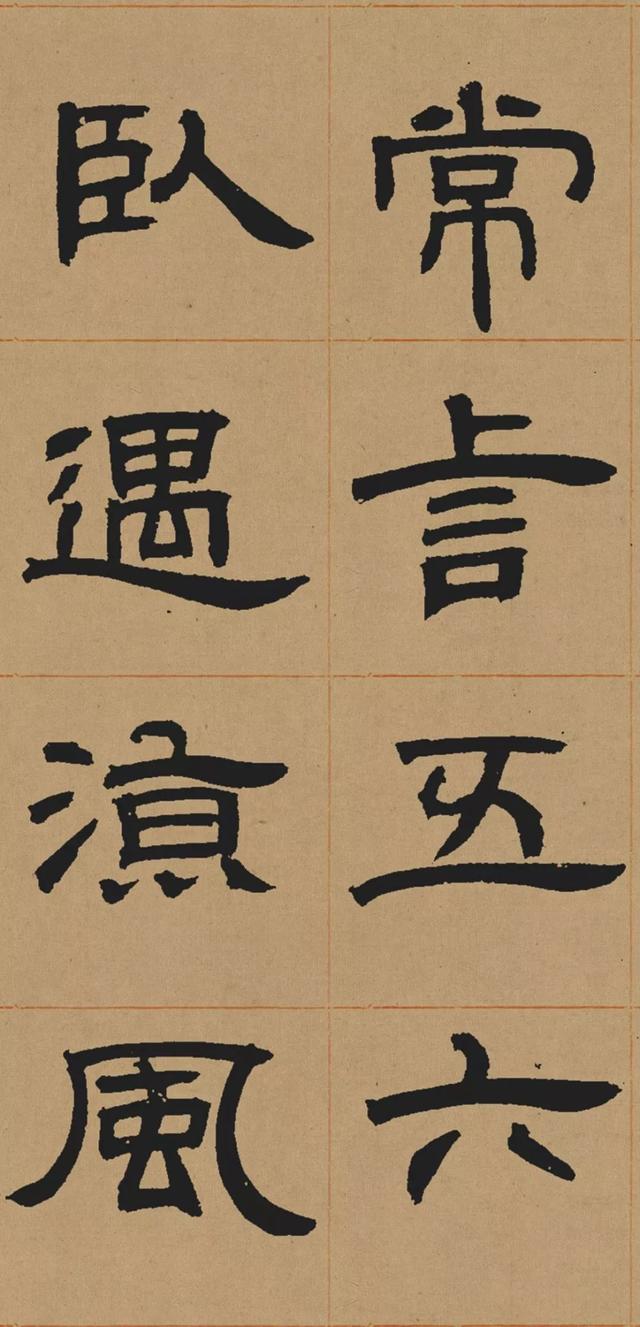 常言五六
臥遇涼風